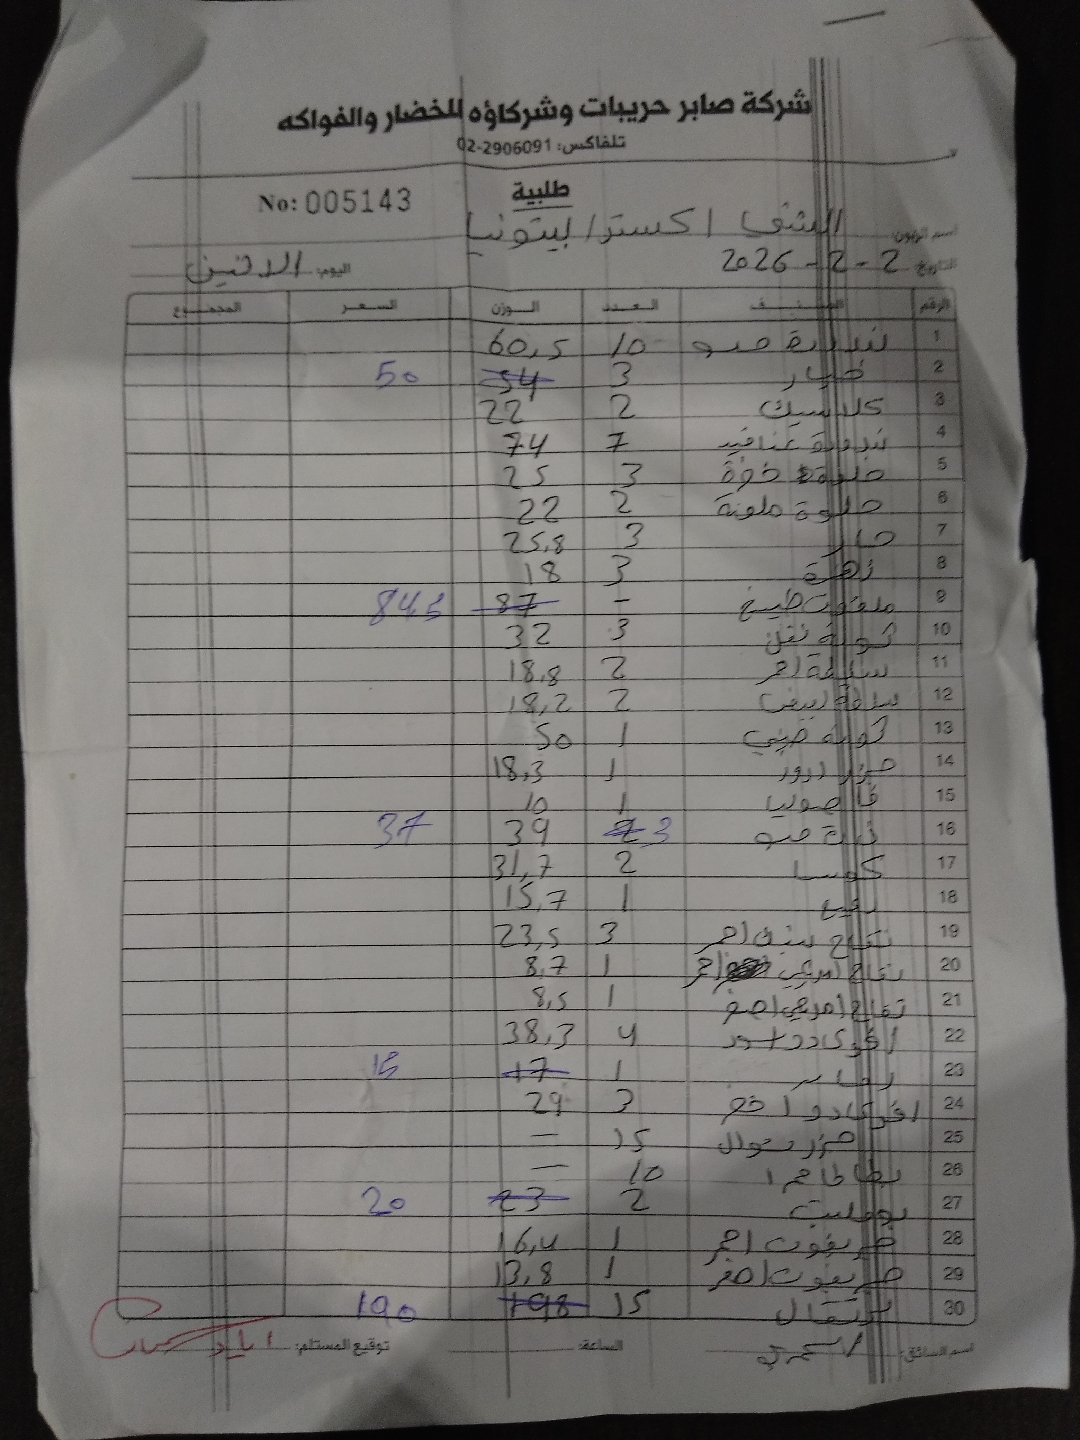 شركة صابر حريبات وشركاؤه للخضار والفواكه
تلفاكس: 02-2906091
طلبية
No: 005143
اسم الزبون: الشني اكسترا بيتونيا
التاريخ: 2-2-2026 اليوم: الاثنين
الرقم الصنف العدد الوزن السعر المجموع
1 بندورة حبو 10 60,5
2 خيار 3 54 50
3 كلاسيك 2 22
4 بندورة عناقيد 7 74
5 حلوة 3 25
6 حلوة ملونة 2 22
7 حار 3 25,8
8 زهرة 3 18
9 ملفوف طبيخ - 87 84,5
10 3 32
11 احمر 2 18,8
12 ابيض 2 18,2
13 1 50
14 جزر 1 18,3
15 فاصوليا 1 10
16 3 39 37
17 كوسا 2 31,7
18 1 15,7
19 تفاح احمر 3 23,5
20 تفاح احمر 1 8,7
21 تفاح اصفر 1 8,5
22 افوكادو اسود 4 38,3
23 1 17 16
24 افوكادو اخضر 3 29
25 جزر 15 —
26 بطاطا حمرا 10 —
27 بوملي 2 23 20
28 جريفوت احمر 1 16,4
29 جريفوت اصفر 1 13,8
30 برتقال 15 198 190
اسم السائق: الساعة: توقيع المستلم: اياد